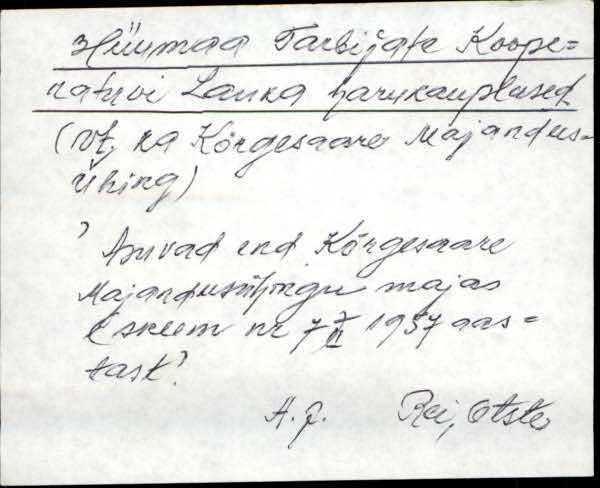 Hiiumaa Tarbijate Koope=
ratiivi Lauka harukauplused
(vt. ka Kõrgesaare Majandus=
ühing)
? Asuvad end. Kõrgesaare
Majandusühingu majas
(skeem nr 7 1957 aas=
tast?
A. J. Rei, Otste